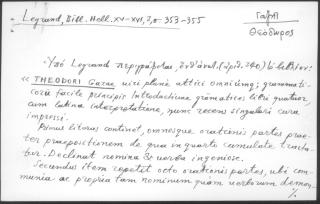 Legrand, Bibl. Hell. XV-XVI, 2, σ. 353-355
Γαζῆ
Θεόδωρος
Ὑπὸ Legrand περιγράφεται
« THEODORI Gazae uiri plane attici omnium; grammati-
corū facile principis Introductiuae grāmatices libri quatuor,
cum latina interpretatione, nunc recens singulari cura
impressi.
Primus librus continet, omnesque orationis partes prae-
ter praepositionem de qua in quarto cumulate tracta-
tur. Declinat nomina & uerba ingeniose.
Secundus item repetit octo orationis partes, ubi com-
munia ac propria tam nominum quam uerborum demon-
./.